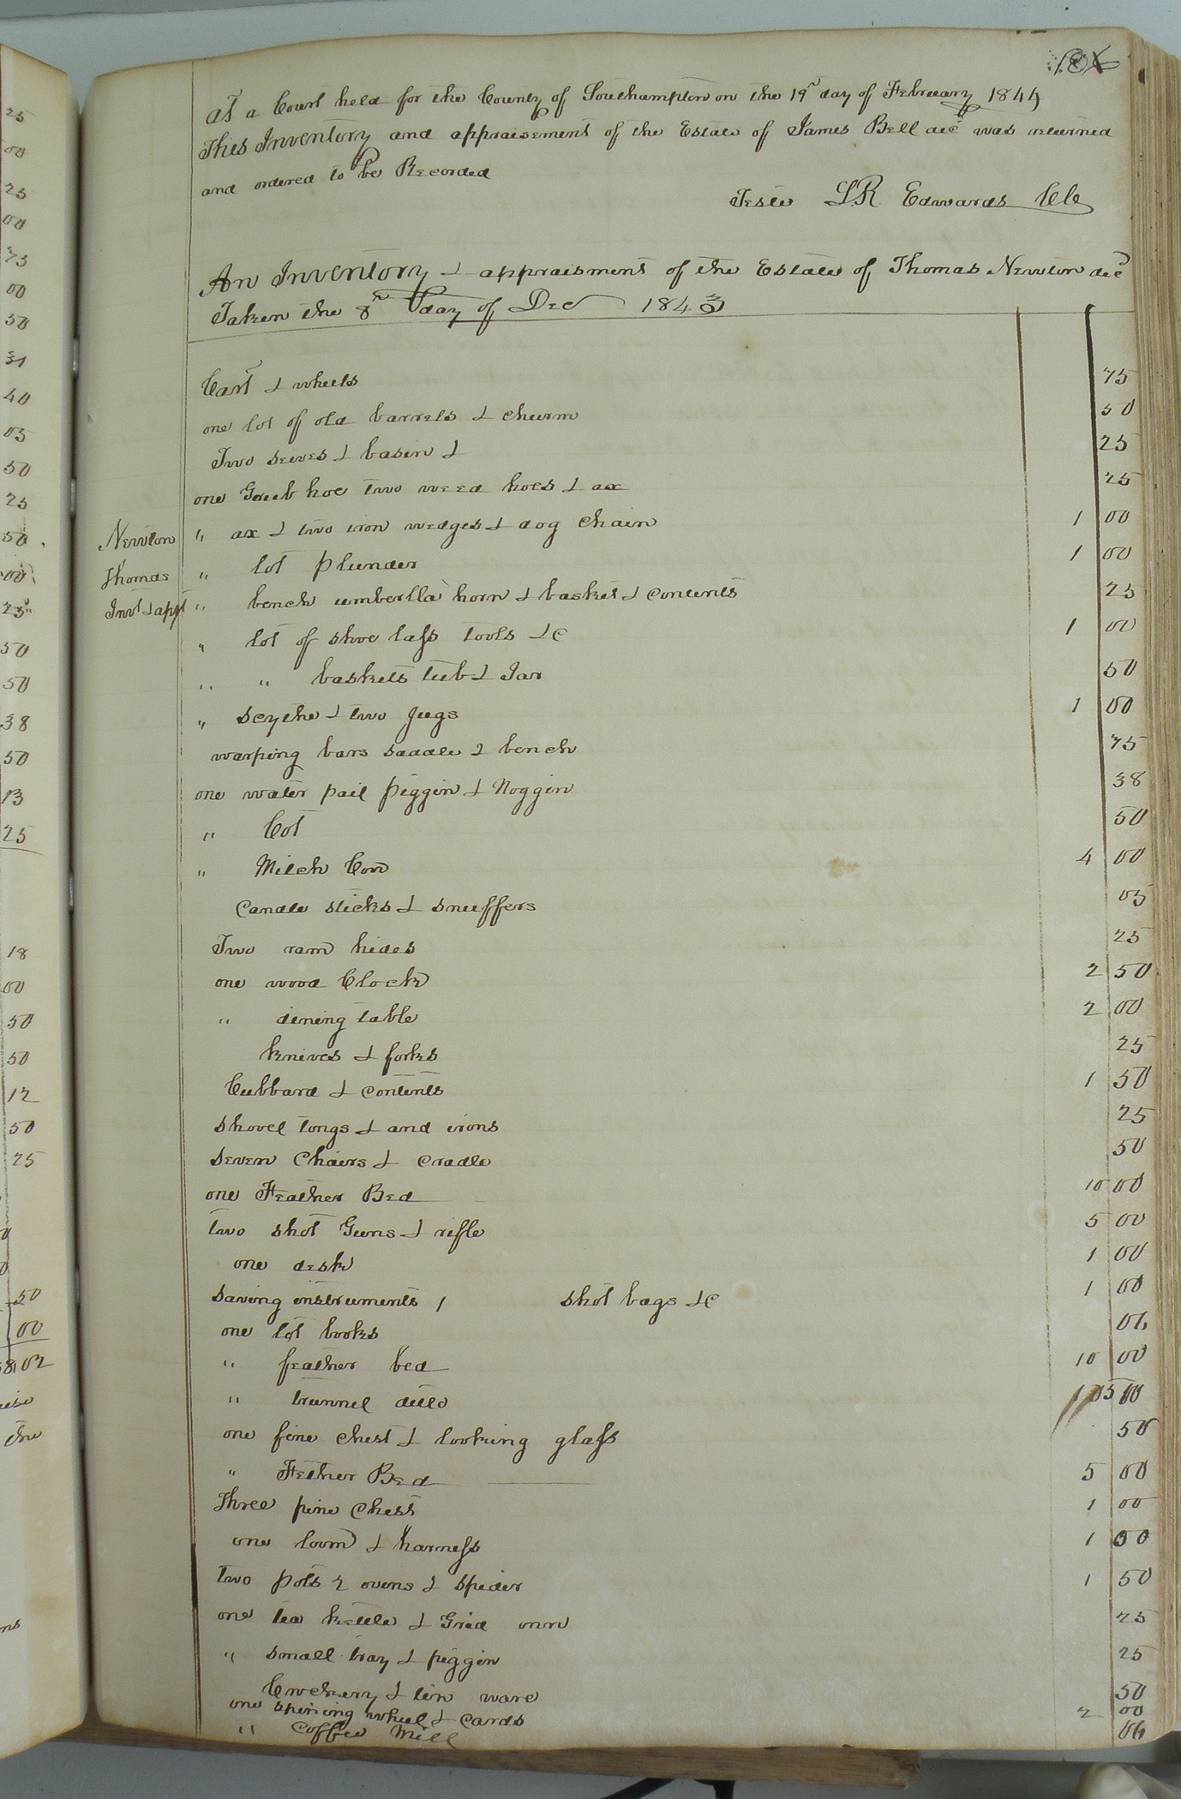 At a Court held for the County of Southampton on the 19th day of February 1844
This Inventory and appraisement of the Estate of James Bell decd was returned
and ordered to be Recorded
Teste L.R. Edwards Clk
An Inventory & appraisment of the Estate of Thomas Newton decd
Taken the 8th day of Dec 1843
Newton
Thomas
Invt & appt
Cart & wheels 75
one lot of old barrels & churm 50
Two seives & basin & 25
one Grub hoe two weed hoes & ax 25
" ax & two iron wedges & dog chain 1 00
" lot plunder 1 00
" bench umberlla horn & basket & contents 25
" lot of shoe lass tools &c 1 00
" " baskets tub & Jar 50
" scythe & two Jugs 1 00
warping bars saddle & bench 75
one water pail piggin & Noggin 38
" Cot 50
" Milch Cow 4 00
Candle sticks & snuffers 05
Two ram hides 25
one wood Clock 2 50
" dining table 2 00
knives & forks 25
Cubbard & contents 1 50
shovel tongs & and irons 25
seven Chairs & cradle 50
one Feather Bed 10 00
two shot Guns & rifle 5 00
one desk 1 00
saving instruments / shot bags &c 1 00
one lot books 06
" feather bed 10 00
" trunnel ditto
one fine chest & looking glass 50
" Fether Bed 5 00
Three pine Chest 1 00
one loom & harness 1 00
two pots 2 ovens & spider 1 50
one tea kettle & Grid 25
" small tray & piggin 25
Crockery & tin ware 50
one spining wheel & cards 2 00
" Coffee Mill 06
25
00
25
00
75
00
50
31
40
05
50
25
50
00
25
50
50
38
50
13
25
18
00
50
50
12
50
25
50
00